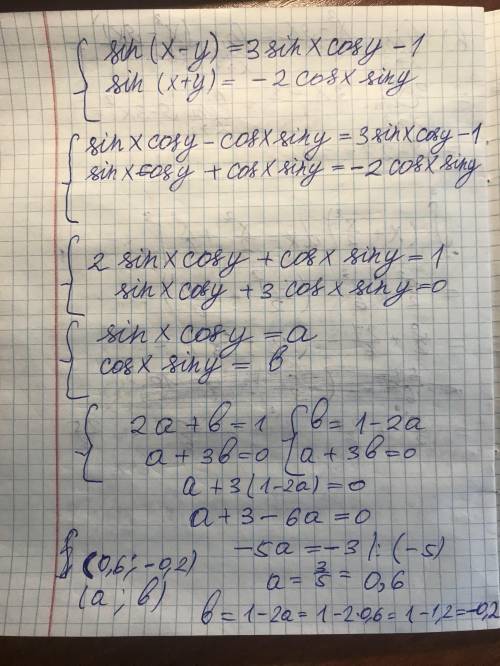 sin (x-y) = 3 sin x cos y - 1
sin (x+y) = -2 cos x sin y
sin x cos y - cos x sin y = 3 sin x cos y - 1
sin x cos y + cos x sin y = -2 cos x sin y
2 sin x cos y + cos x sin y = 1
sin x cos y + 3 cos x sin y = 0
sin x cos y = a
cos x sin y = b
2a + b = 1 { b = 1-2a
a + 3b = 0 { a + 3b = 0
a + 3(1-2a) = 0
a + 3 - 6a = 0
-5a = -3 | : (-5)
(0,6; -0,2)
a = 3/5 = 0,6
(a ; b)
b = 1-2a = 1-2·0,6 = 1-1,2 = -0,2